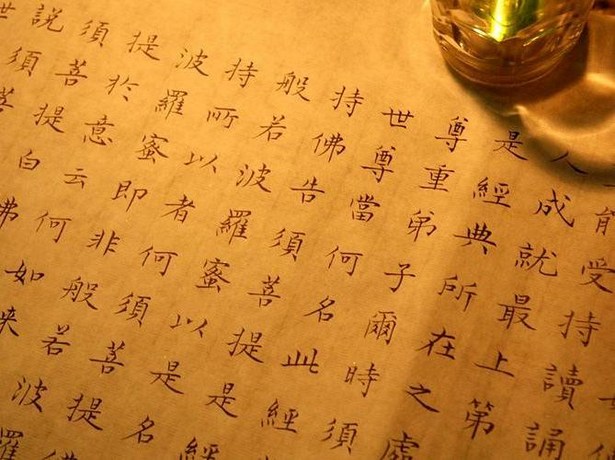 能受持讀誦
人成就最上第
是經典所在之處
尊重弟子爾時須
世尊當何名此經
持佛告須菩提是經
般若波羅蜜以是名
持所以者何須菩提佛
波羅蜜即非般若波羅
提於意云何如來
須菩提白佛
說須菩
世